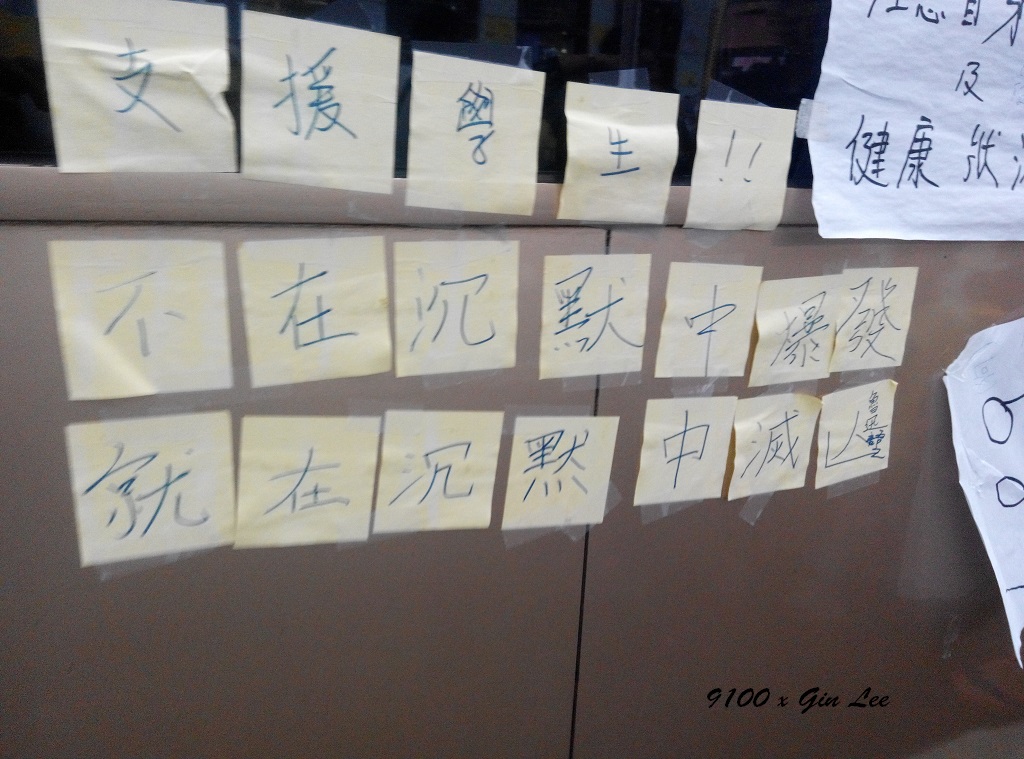 支援學生!!
不在沉默中爆發
就在沉默中滅亾
魯迅
注意自身
及
健康狀況
9100 x Gin Lee